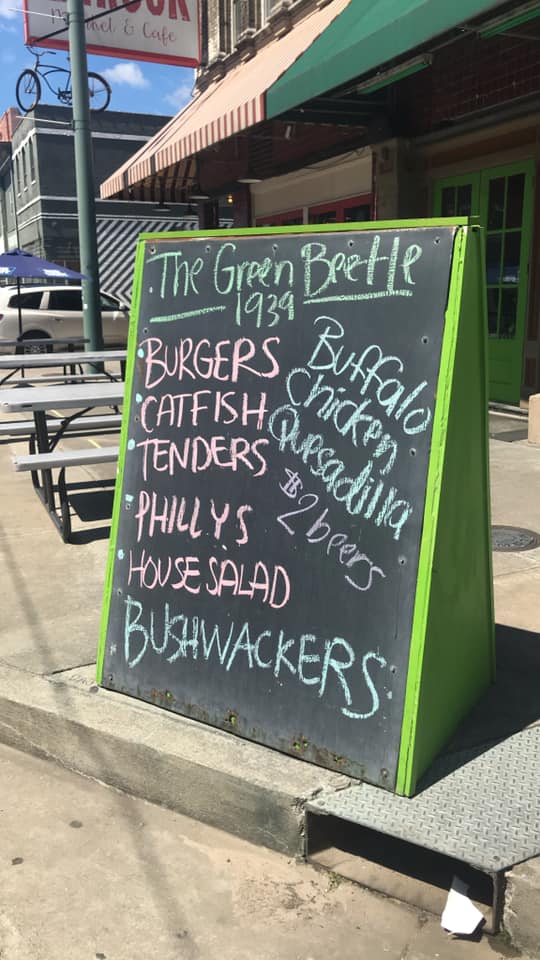 & Cafe
The Green Beetle
1939
BURGERS
CATFISH
TENDERS
PHILLY'S
HOUSE SALAD
BUSHWACKERS
Buffalo
Chicken
Quesadilla
$2 beers